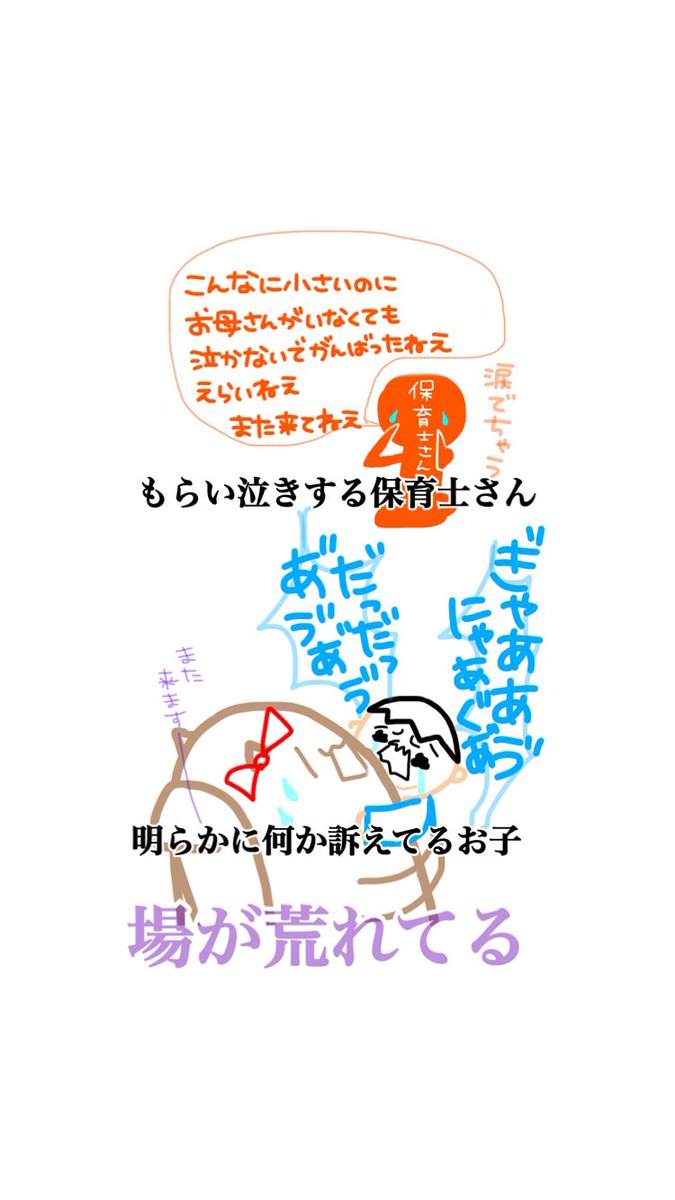 こんなに小さいのに
お母さんがいなくても
泣かないでがんばったねえ
えらいねえ
また来てねえ
保育士さん
涙でちゃう
もらい泣きする保育士さん
ぎゃああゔ
にゃあぐあ゙
だっだっゔ
あ゙ゔあ゙
また
来ます
明らかに何か訴えてるお子
場が荒れてる